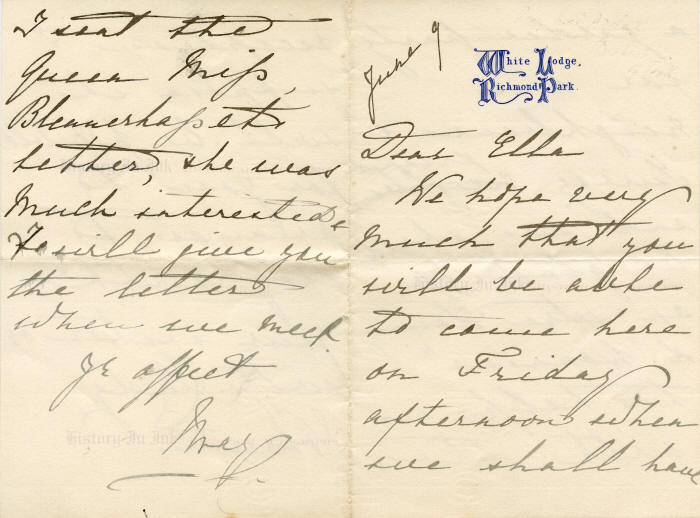 June 9
White Lodge,
Richmond Park.
Dear Ella
We hope very
much that you
will be able
to come here
on Friday
afternoon when
we shall have
I sent the
Queen Miss
Blennerhassett's
letter, she was
much interested &
I will give you
the letter
when we meet.
Yr affect
May.
History-In-Ink